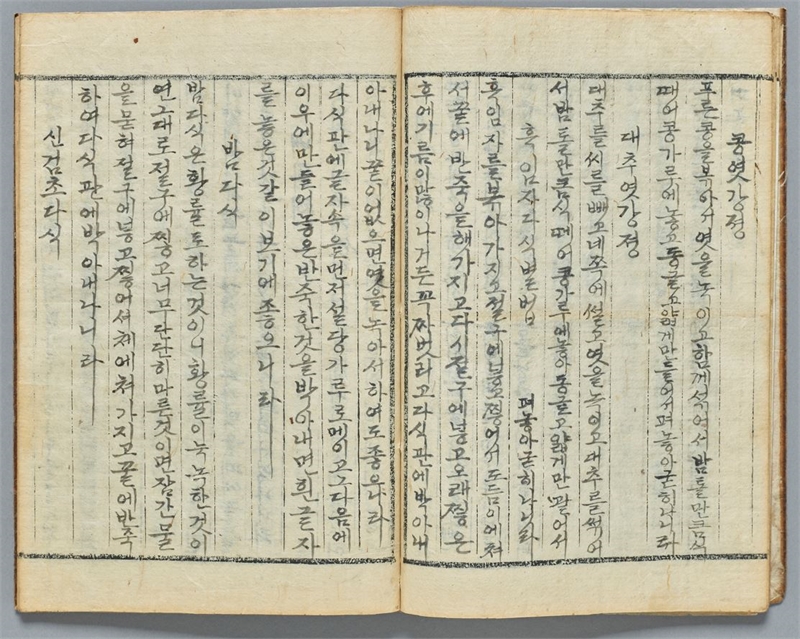 콩엿강졍
푸른콩을볶아서엿을녹이고함께석어서밤톨만큼식
떼어콩가루에놓고동글고얇게만들어서펴놓아굳히나니라
대추엿강졍
대추를씨를빼고네쪽에썰고엿을녹이고대추를썩어
서밤톨만큼식떼어콩가루에놓아동글고얇게만들어서
펴놓아굳히나니라
흑임자다식별법
흑임자를볶아가지고절구에넣고찧어서도듬이에쳐
서꿀에반죽을해가지고다시절구에넣고오래찧은
후에기름이많이나거든꼭짜벗리고다식판에박아내
아내나니꿀이없으면엿을녹아서하여도좋으니라
다식판에글자속을먼저설당가루로메이고그다음에
이우에만들어놓은반죽한것을박아내면흰글자
를놓은것갈이보기에좋으니라
밤다식
밤다식은황률도하는것이니황률이눅눅한것이
연근대로절구에찧고너무단단히마른것이면잠간물
을묻혀절구에넣고찧어셔체에쳐가지고꿀에반죽
하여다식판에박아내나니라
신검초다식